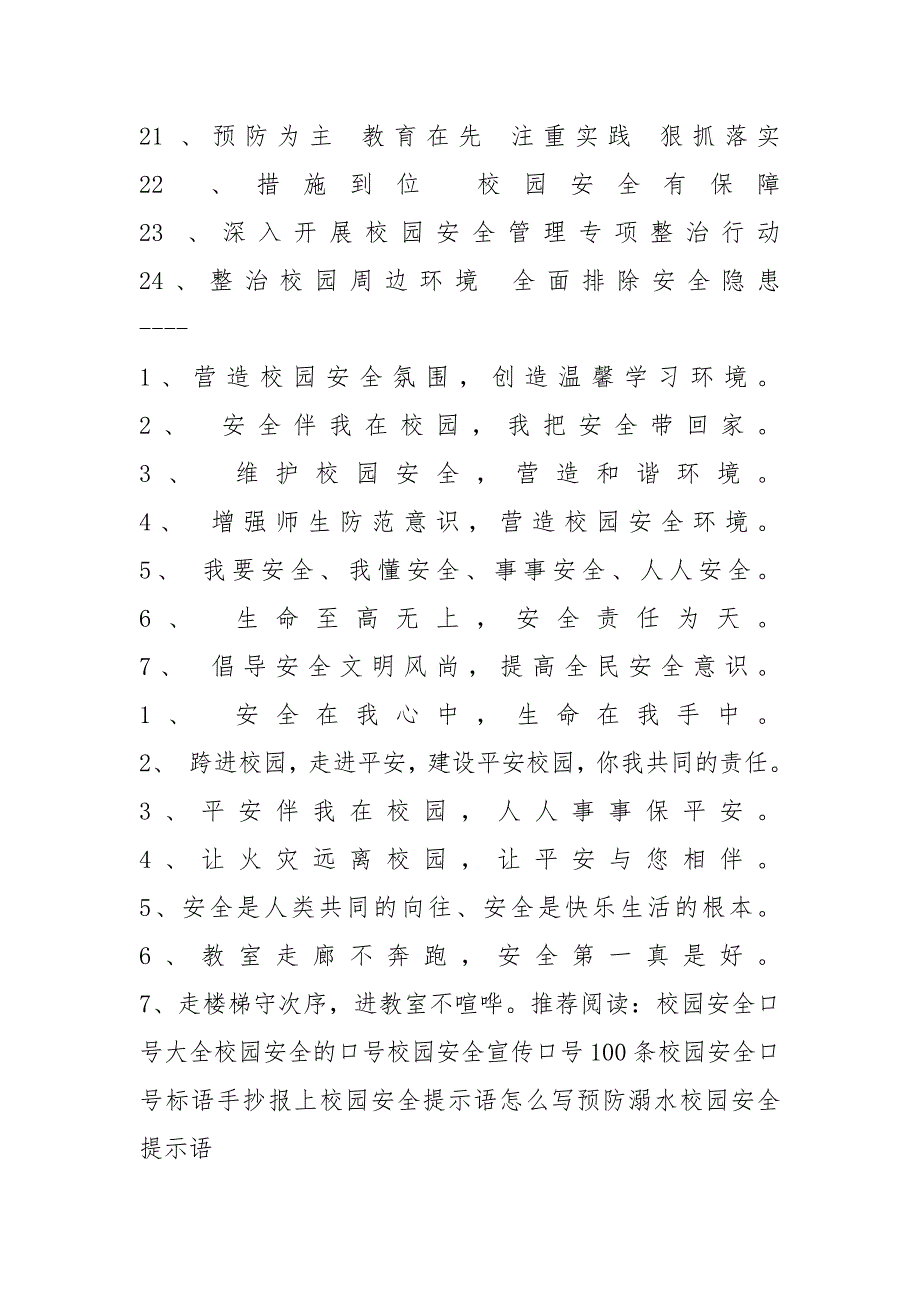 21、预防为主 教育在先 注重实践 狠抓落实
22、措施到位 校园安全有保障
23、深入开展校园安全管理专项整治行动
24、整治校园周边环境 全面排除安全隐患
----
1、营造校园安全氛围，创造温馨学习环境。
2、 安全伴我在校园，我把安全带回家。
3、 维护校园安全，营造和谐环境。
4、 增强师生防范意识，营造校园安全环境。
5、 我要安全、我懂安全、事事安全、人人安全。
6、 生命至高无上，安全责任为天。
7、 倡导安全文明风尚，提高全民安全意识。
1、 安全在我心中，生命在我手中。
2、 跨进校园，走进平安，建设平安校园，你我共同的责任。
3、平安伴我在校园，人人事事保平安。
4、让火灾远离校园，让平安与您相伴。
5、安全是人类共同的向往、安全是快乐生活的根本。
6、教室走廊不奔跑，安全第一真是好。
7、走楼梯守次序，进教室不喧哗。推荐阅读：校园安全口
号大全校园安全的口号校园安全宣传口号 100 条校园安全口
号标语手抄报上校园安全提示语怎么写预防溺水校园安全
提示语